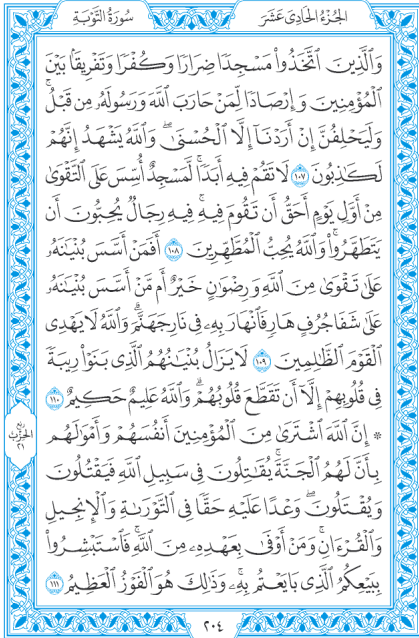 الجُزْءُ الحَادِى عَشَرَ
سُورَةُ التَّوْبَةِ
وَالَّذِينَ اتَّخَذُوا مَسْجِدًا ضِرَارًا وَكُفْرًا وَتَفْرِيقًا بَيْنَ
الْمُؤْمِنِينَ وَإِرْصَادًا لِّمَنْ حَارَبَ اللَّهَ وَرَسُولَهُۥ مِن قَبْلُ ۚ
وَلَيَحْلِفُنَّ إِنْ أَرَدْنَا إِلَّا الْحُسْنَىٰ ۖ وَاللَّهُ يَشْهَدُ إِنَّهُمْ
لَكَٰذِبُونَ ١٠٧ لَا تَقُمْ فِيهِ أَبَدًا ۚ لَّمَسْجِدٌ أُسِّسَ عَلَى التَّقْوَىٰ
مِنْ أَوَّلِ يَوْمٍ أَحَقُّ أَن تَقُومَ فِيهِ ۚ فِيهِ رِجَالٌ يُحِبُّونَ أَن
يَتَطَهَّرُوا ۚ وَاللَّهُ يُحِبُّ الْمُطَّهِّرِينَ ١٠٨ أَفَمَنْ أَسَّسَ بُنْيَٰنَهُۥ
عَلَىٰ تَقْوَىٰ مِنَ اللَّهِ وَرِضْوَٰنٍ خَيْرٌ أَم مَّنْ أَسَّسَ بُنْيَٰنَهُۥ
عَلَىٰ شَفَا جُرُفٍ هَارٍ فَانْهَارَ بِهِۦ فِى نَارِ جَهَنَّمَ ۗ وَاللَّهُ لَا يَهْدِى
الْقَوْمَ الظَّٰلِمِينَ ١٠٩ لَا يَزَالُ بُنْيَٰنُهُمُ الَّذِى بَنَوْا رِيبَةً
فِى قُلُوبِهِمْ إِلَّا أَن تَقَطَّعَ قُلُوبُهُمْ ۗ وَاللَّهُ عَلِيمٌ حَكِيمٌ ١١٠
۞ إِنَّ اللَّهَ اشْتَرَىٰ مِنَ الْمُؤْمِنِينَ أَنفُسَهُمْ وَأَمْوَٰلَهُم
بِأَنَّ لَهُمُ الْجَنَّةَ ۚ يُقَٰتِلُونَ فِى سَبِيلِ اللَّهِ فَيَقْتُلُونَ
وَيُقْتَلُونَ ۖ وَعْدًا عَلَيْهِ حَقًّا فِى التَّوْرَىٰةِ وَالْإِنجِيلِ
وَالْقُرْءَانِ ۚ وَمَنْ أَوْفَىٰ بِعَهْدِهِۦ مِنَ اللَّهِ ۚ فَاسْتَبْشِرُوا
بِبَيْعِكُمُ الَّذِى بَايَعْتُم بِهِۦ ۚ وَذَٰلِكَ هُوَ الْفَوْزُ الْعَظِيمُ ١١١
رُبْع
الحِزْب
٢١
٢٠٤